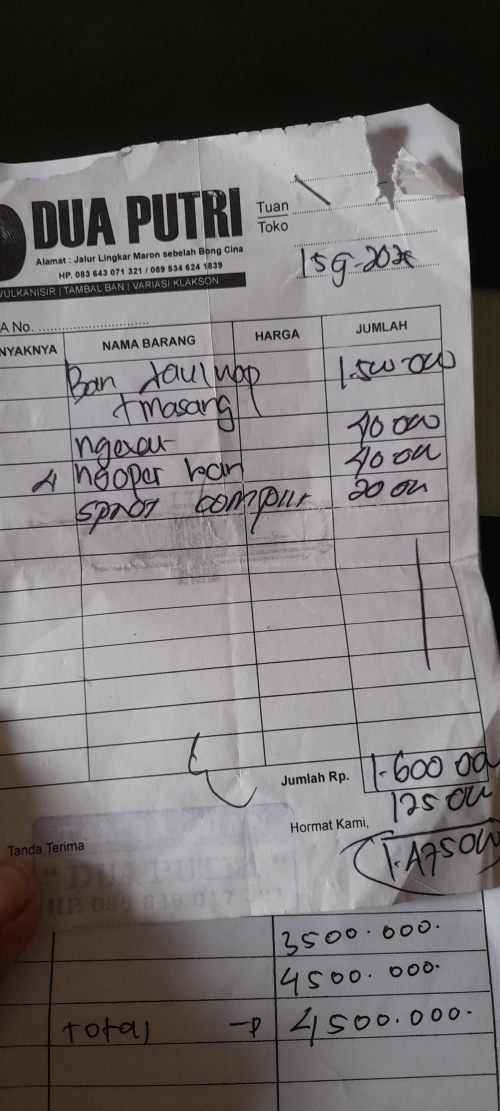 DUA PUTRI
Alamat : Jalur Lingkar Maron sebelah Bong Cina
HP. 083 643 071 321 / 089 534 624 1839
VULKANISIR | TAMBAL BAN | VARIASI KLAKSON
Tuan
Toko
A No.
NYAKNYA NAMA BARANG HARGA JUMLAH
Ban 1.500.000
+ masang
40 000
4 ngoper ban 40 000
20 000
Jumlah Rp. 1.600 000
125 000
Hormat Kami,
1.475000
Tanda Terima
" DUA PUTRI "
3500.000.
4500.000.
total 4500.000.